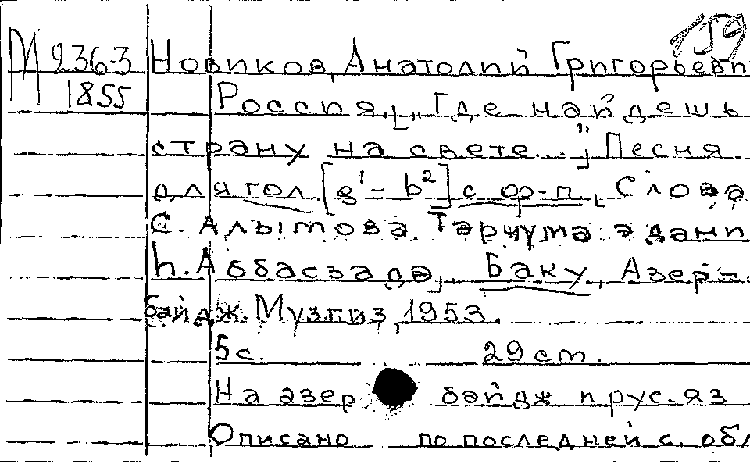 159
М 9363 Новиков, Анатолий Григорьевич
1855 Россия. [„Где найдешь
страну на свете..."] Песня
для гол. [g¹-b²] с ф-п. Слова
С. Алымова. Тәрҹүмә эдәни
Һ. Аббасзадә. Баку, Азер-
байдж. Музгиз, 1953.
5с. 29 cm.
На азербайдж и рус. яз
Описано по последней с. обл